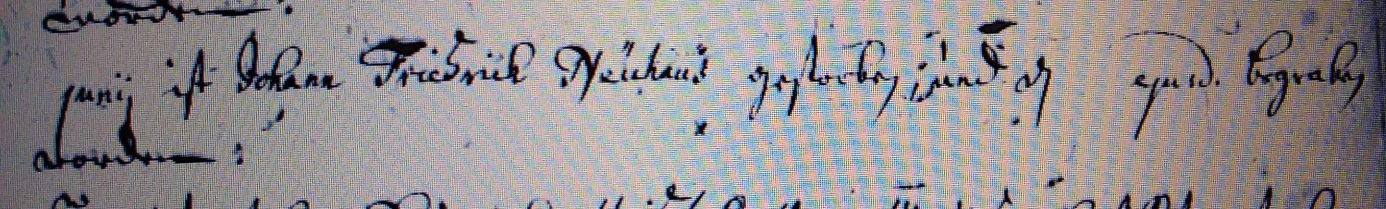 worden :
Junij ist Johann Friedrich Neuhaus gestorben und d ejusd. begraben
worden :